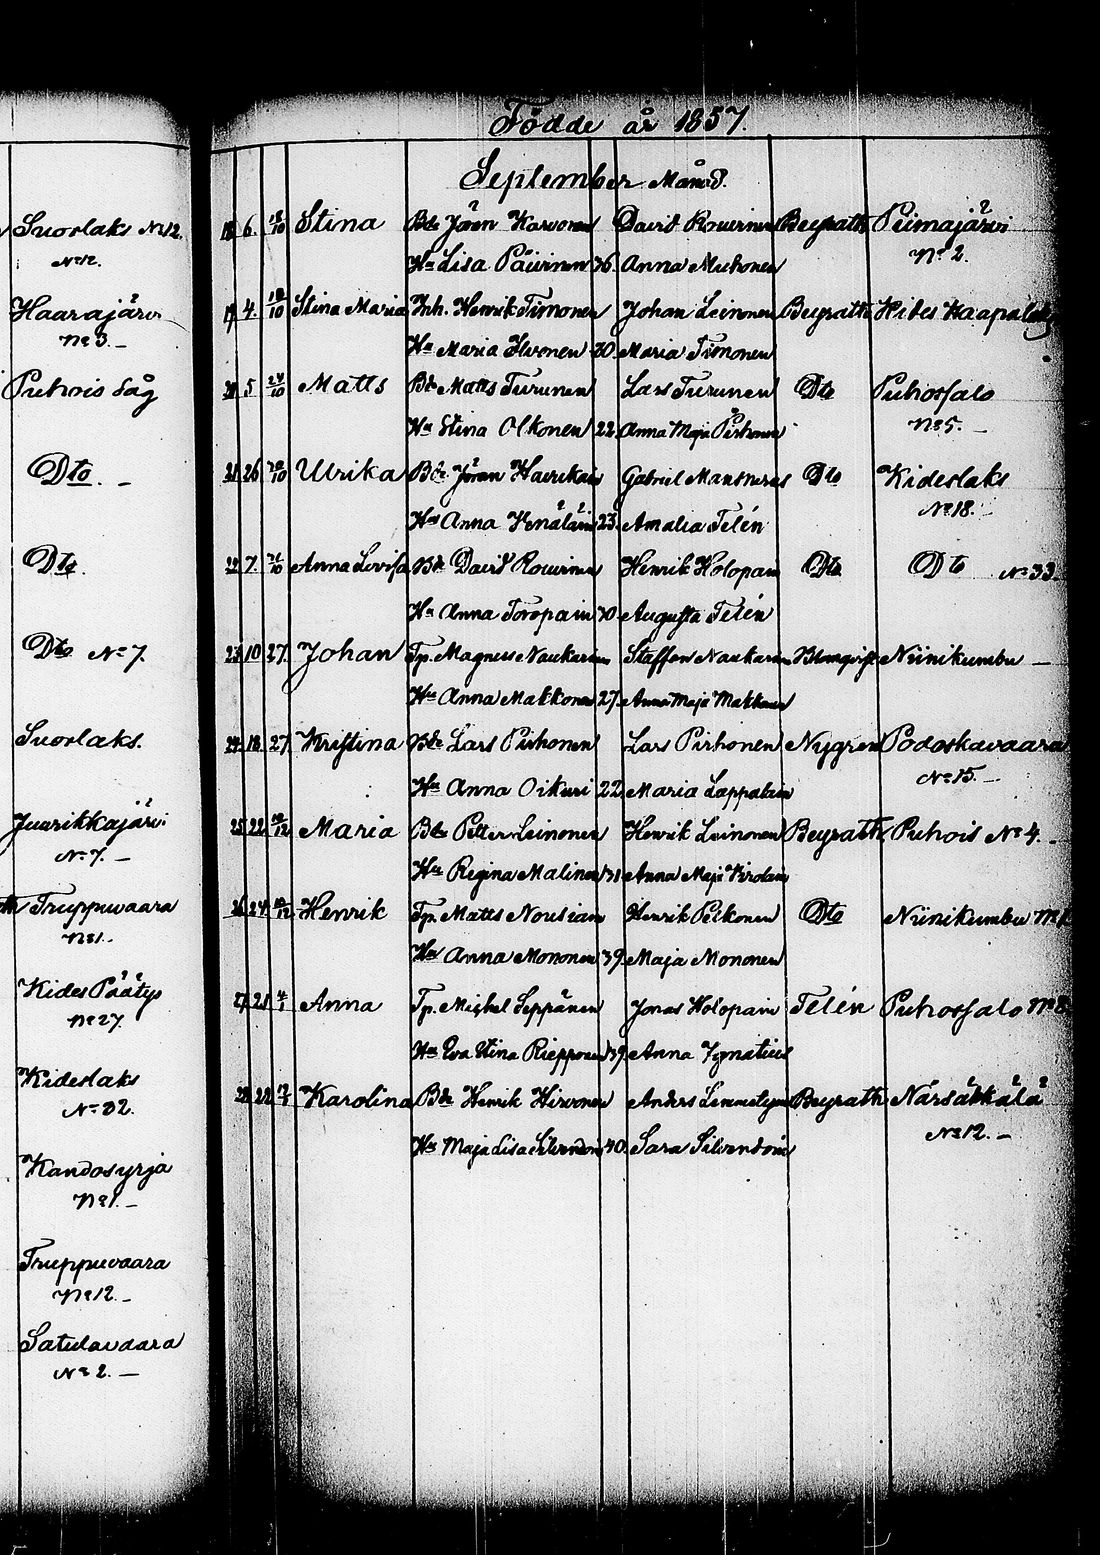 Suorlaks No 12.
No 12.
Haarajärvi
No 3. —
Puhois Såg
Dto. —
Dto.
Dto No 7.
Suorlaks.
Juurikkajärvi
No 7. —
Truppuvaara
No 1. —
Kides Päätys
No 27.
Kideslaks
No 32.
Kandosyrjä
No 1. —
Truppuvaara
No 12. —
Satulavaara
No 2. —
Födde år 1857.
September Månad.
18 6. 18/10 Stina Bde Jöran Karvonen David Rouvinen Beyrath Piimajärvi
Hu Lisa Päivinen 36. Anna Muhonen No 2.
19 4. 18/10 Stina Maria Inh. Henrik Timonen Johan Leinonen Beyrath Kides
Hu Maria Ilvonen 30. Maria Timonen
20 5 24/10 Matts Bde Matts Turunen Lars Turunen Dto Puhossalo
Hu Stina Olkonen 22. Anna Maja Pirhonen No 5. —
21 26 Ulrika Bde Jöran Haerikain Gabriel Dto Kideslaks
Hu Anna Venäläin 23. Amalia Telén No 18.
22 7. Anna Lovisa Bde David Rouvinen Henrik Holopain Dto Dto No 33.
Hu Anna Toropain 30 Augusta Telén
23 10 27. Johan Tp. Magnus Naukarin Staffan Naukarin Blomqvist Niinikumbu —
Hu Anna Makkonen 27. Anna Maja Makkonen
24 18. 27. Kristina Bde Lars Pirhonen Lars Pirhonen Nygren Podoskavaara
Hu Anna Oikuri 22. Maria Lappalain No 15. —
25 22 10/12 Maria Bde Petter Leinonen Henrik Leinonen Beyrath Puhois No 4. —
Hu Regina Malinen 31. Anna Maja Virolain
26 24 Henrik Tp. Matts Nousian Henrik Pelkonen Dto Niinikumbu
Hu Anna Mononen 39. Maja Mononen
27 28 4/1 Anna Tp. Mickel Seppänen Jonas Holopain Telén Puhossalo No 8.
Hu Eva Stina Riepponen 39. Anna Ignatius
28 Karolina Bde Henrik Hirvonen Anders Beyrath Närsäkkälä
Hu Maja Lisa Silvendoin 40. Sara Silvendoin No 12. —